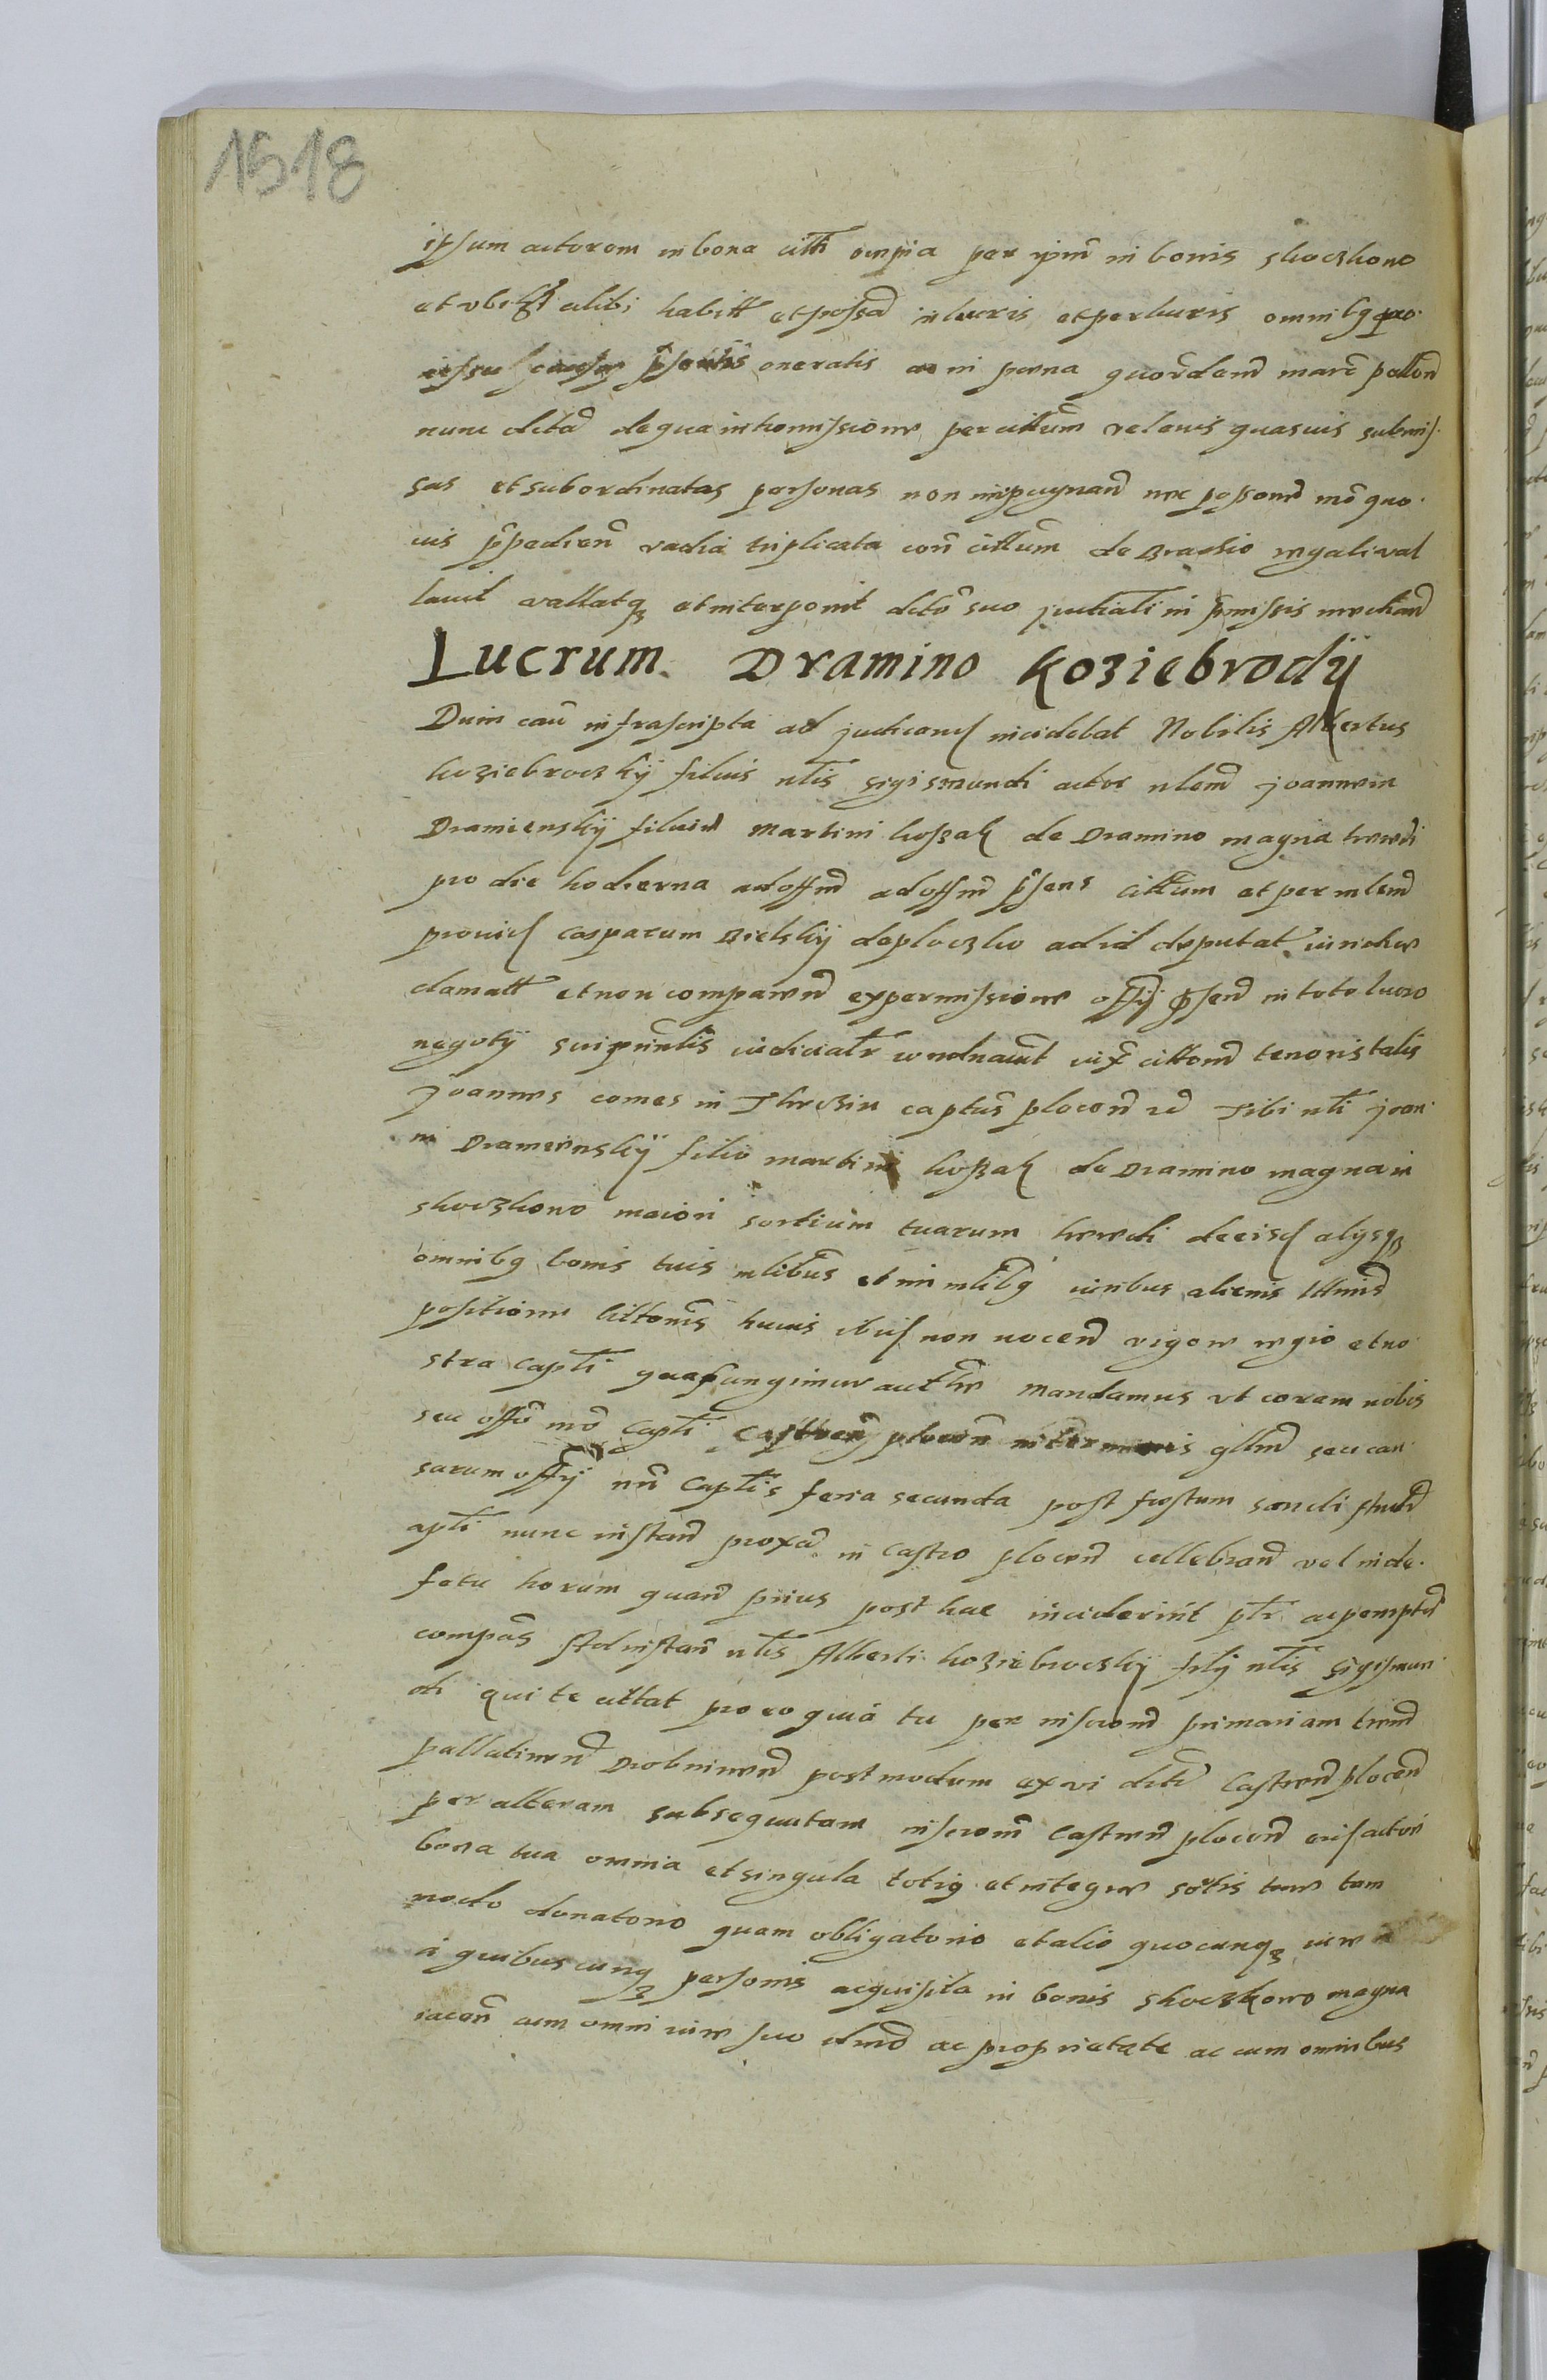 1518
ipsum actorem in bona citti omnia per ipm in bonis skoczkowo
et vbi alibi habitt et possa in lucris et perlucris omnibq pro
cessu causa oneratis in poena quordam marc pallon
nunc dicta de qua intromissione per cittum vel eius quasuis submis
sas et subordinatas personas non impugnand nec possend mo quo
uis ppedien vadia triplicata con cittum de Brachio regali val
lauit vallatq et interponit dcto suo judiciali in pmissis mediand
Lucrum Dramino Koziebrodÿ
Dum cau infrascripta ad judicand incidebat Nobilis Albertus
koziebroczkÿ filius nlis sigismundi actor nlem joannem
Dramienskÿ filium Martini kossak de Dramino magna heredi
pro die hodierna ad offm ad offm psens cittum et per nlem
prouid casparum Bielskÿ de ploczko ad id deputat
clamatt et non comparend ex permissione offÿ psend in toto lucro
negotÿ sui pncilis judicialr condnauit vix cittonis tenoris talis
Joannes comes in captus plocen Tibi nli joan
ni Dramienskÿ filio martini kossak de Dramino magna in
skoczkowo maiori sortium tuarum heredi de eisd alÿsqz
omnibq bonis tuis mlibus et im mlibq iuribus alienis
positione cittonis huius non nocend vigore regio et no
stra capli qua fungimur authte mandamus vt coram nobis
seu offo nro capli castren plocen in terminis gllind seu cau
sarum offÿ nri caplis feria secunda post festum sancti
apli nunc instan proxa in castro plocen cellebrand vel in de
fetu horum quand prius post hac inciderint plr ac pemptd
compas instan nlis Alberti koziebroczkÿ filÿ nlis sigismun
di qui te cittat pro eo quia tu per inscrond primariam trend
pallatinend Drobninend postmodum ex vi dict castrend plocend
per alteram subsequutam inscrond castrend plocend actori
bona tua omnia et singula totiq et integre sortis tuae tam
modo donatorio quam obligatorio et alio quocunqz iure
a quibuscunqz personis acquisita in bonis skoczkowo magna
iacen cum omni iure suo dnio ac proprietate ac cum omnibus